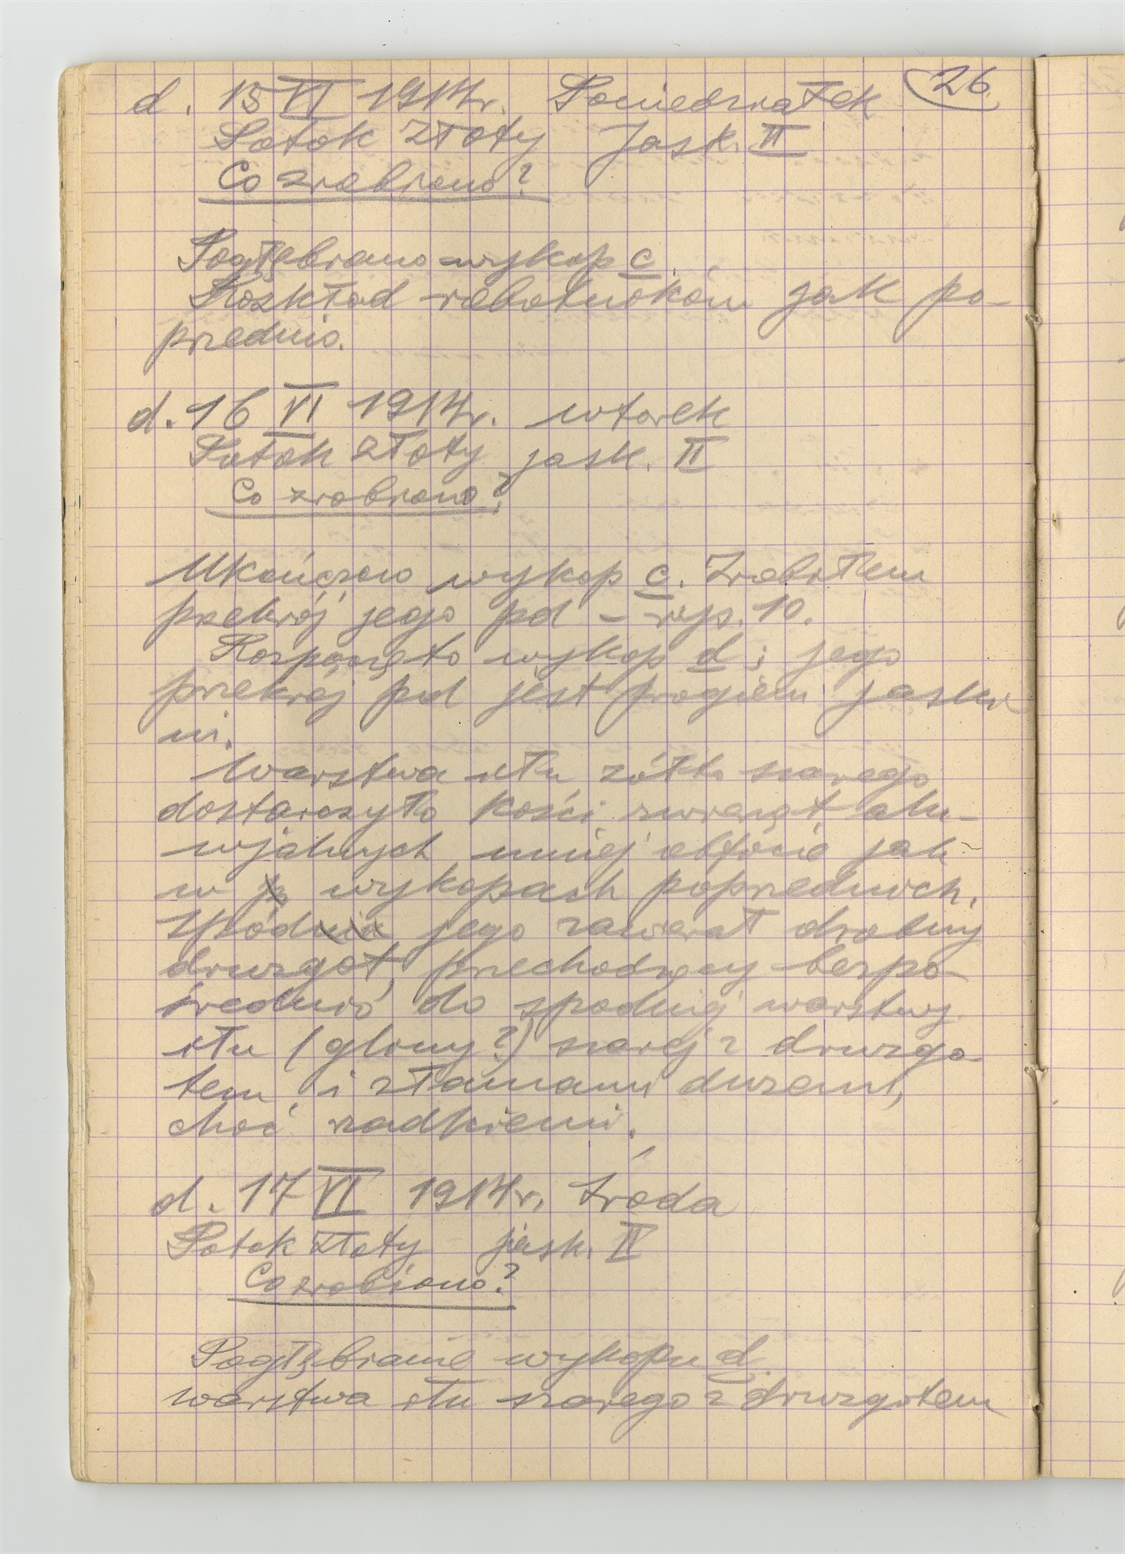 26
d. 15 VI 1914 r. Poniedziałek
Potok Złoty Jask. II
Co zrobiono?
Pogłębiano wykop c.
Rozkład robotników jak po-
przednio.
d. 16 VI 1914 r. wtorek
Potok Złoty jask. II
Co zrobiono?
Ukończono wykop c. Zrobiłem
przekrój jego pd – rys. 10.
Rozpoczęto wykop d; jego
przekrój pd jest progiem jaski
ni.
Warstwa iłu żółto szarego
dostarczyła kości zwierząt alu-
wjalnych mniej obficie jak
w wykopach poprzednich.
Spód jego zawierał drobny
druzgot, przechodzący bezpo-
średnio do spodniej warstwy
iłu (gliny?) szarej z druzgo-
tem i złamami dużemi,
choć rzadkiemi.
d. 17 VI 1914 r. środa
Potok Złoty jask. II
Co zrobiono?
Pogłębianie wykopu d.
warstwa iłu szarego z druzgotem